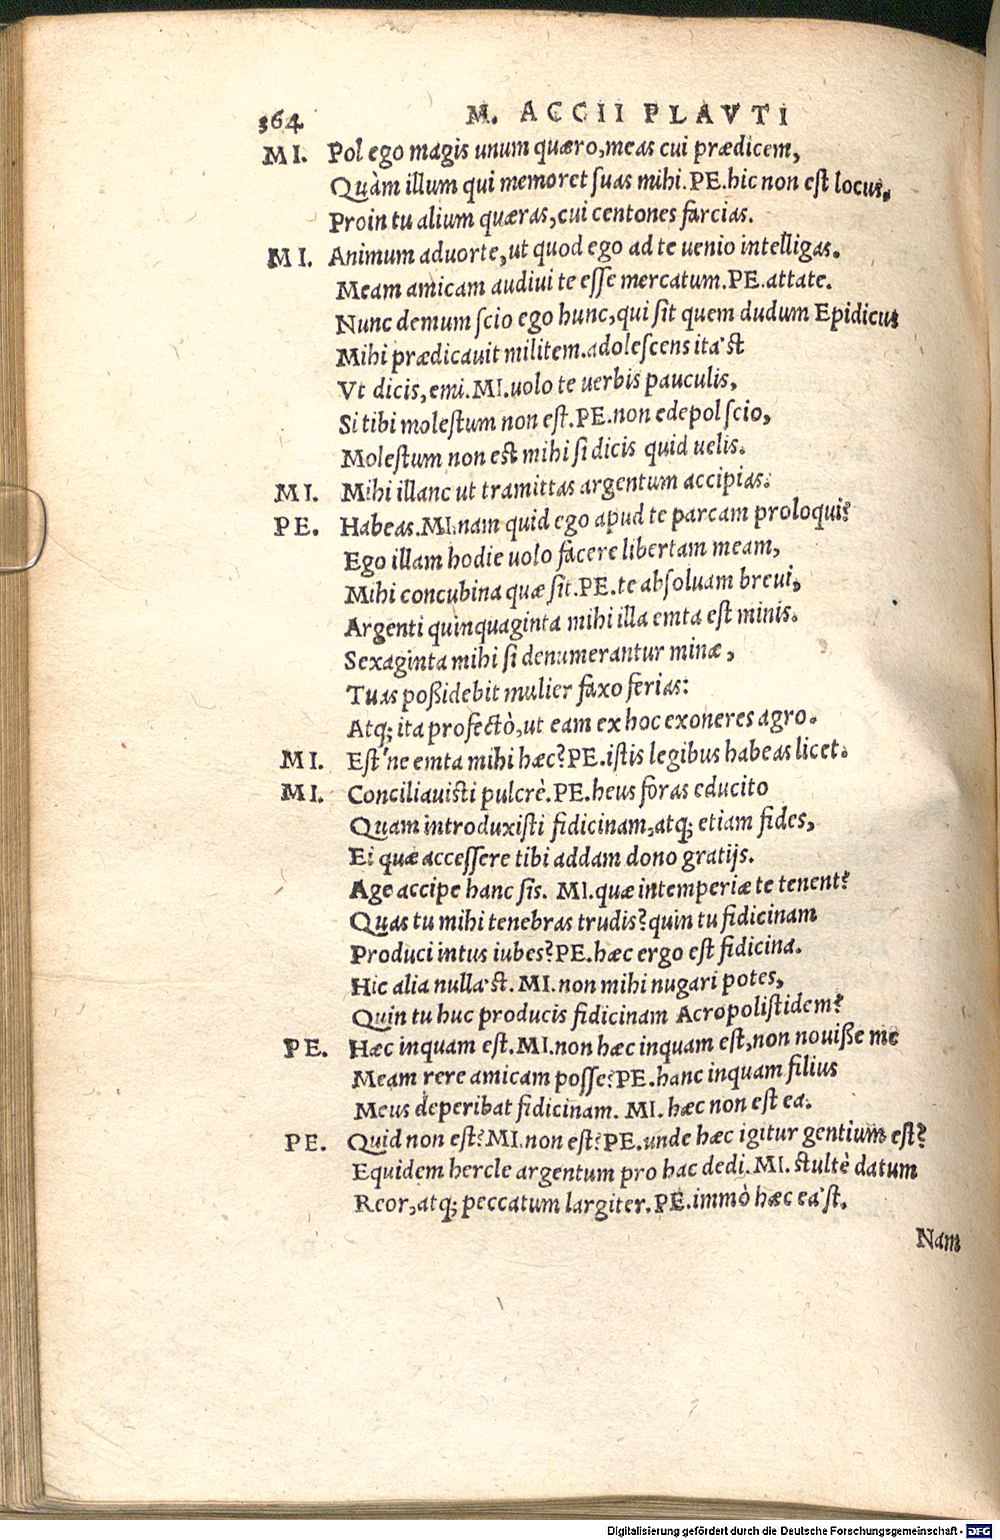 364 M. ACCII PLAVTI
MI. Pol ego magis unum quæro, meas cui prædicem,
Quàm illum qui memoret suas mihi. PE. hic non est locus,
Proin tu alium quæras, cui centones farcias.
MI. Animum aduorte, ut quod ego ad te uenio intelligas.
Meam amicam audiui te esse mercatum. PE. attate.
Nunc demum scio ego hunc, qui sit quem dudum Epidicus
Mihi prædicauit militem. adolescens ita'st
Vt dicis, emi. MI. uolo te uerbis pauculis,
Si tibi molestum non est. PE. non edepol scio,
Molestum non est mihi si dicis quid uelis.
MI. Mihi illanc ut tramittas argentum accipias.
PE. Habeas. MI. nam quid ego apud te parcam proloqui?
Ego illam hodie uolo facere libertam meam,
Mihi concubina quæ sit. PE. te absoluam breui,
Argenti quinquaginta mihi illa emta est minis.
Sexaginta mihi si denumerantur minæ,
Tuas poßidebit mulier faxo ferias:
Atq; ita profectò, ut eam ex hoc exoneres agro.
MI. Est'ne emta mihi hæc? PE. istis legibus habeas licet.
MI. Conciliauisti pulcrè. PE. heus foras educito
Quam introduxisti fidicinam, atq; etiam fides,
Ei quæ accessere tibi addam dono gratijs.
Age accipe hanc sis. MI. quæ intemperiæ te tenent?
Quas tu mihi tenebras trudis? quin tu fidicinam
Produci intus iubes? PE. hæc ergo est fidicina.
Hic alia nulla'st. MI. non mihi nugari potes,
Quin tu huc producis fidicinam Acropolistidem?
PE. Hæc inquam est. MI. non hæc inquam est, non nouiße me
Meam rere amicam posse? PE. hanc inquam filius
Meus deperibat fidicinam. MI. hæc non est ea.
PE. Quid non est? MI. non est? PE. unde hæc igitur gentium est?
Equidem hercle argentum pro hac dedi. MI. stultè datum
Reor, atq; peccatum largiter. PE. immò hæc ea'st.
Nam
Digitalisierung gefördert durch die Deutsche Forschungsgemeinschaft - DFG